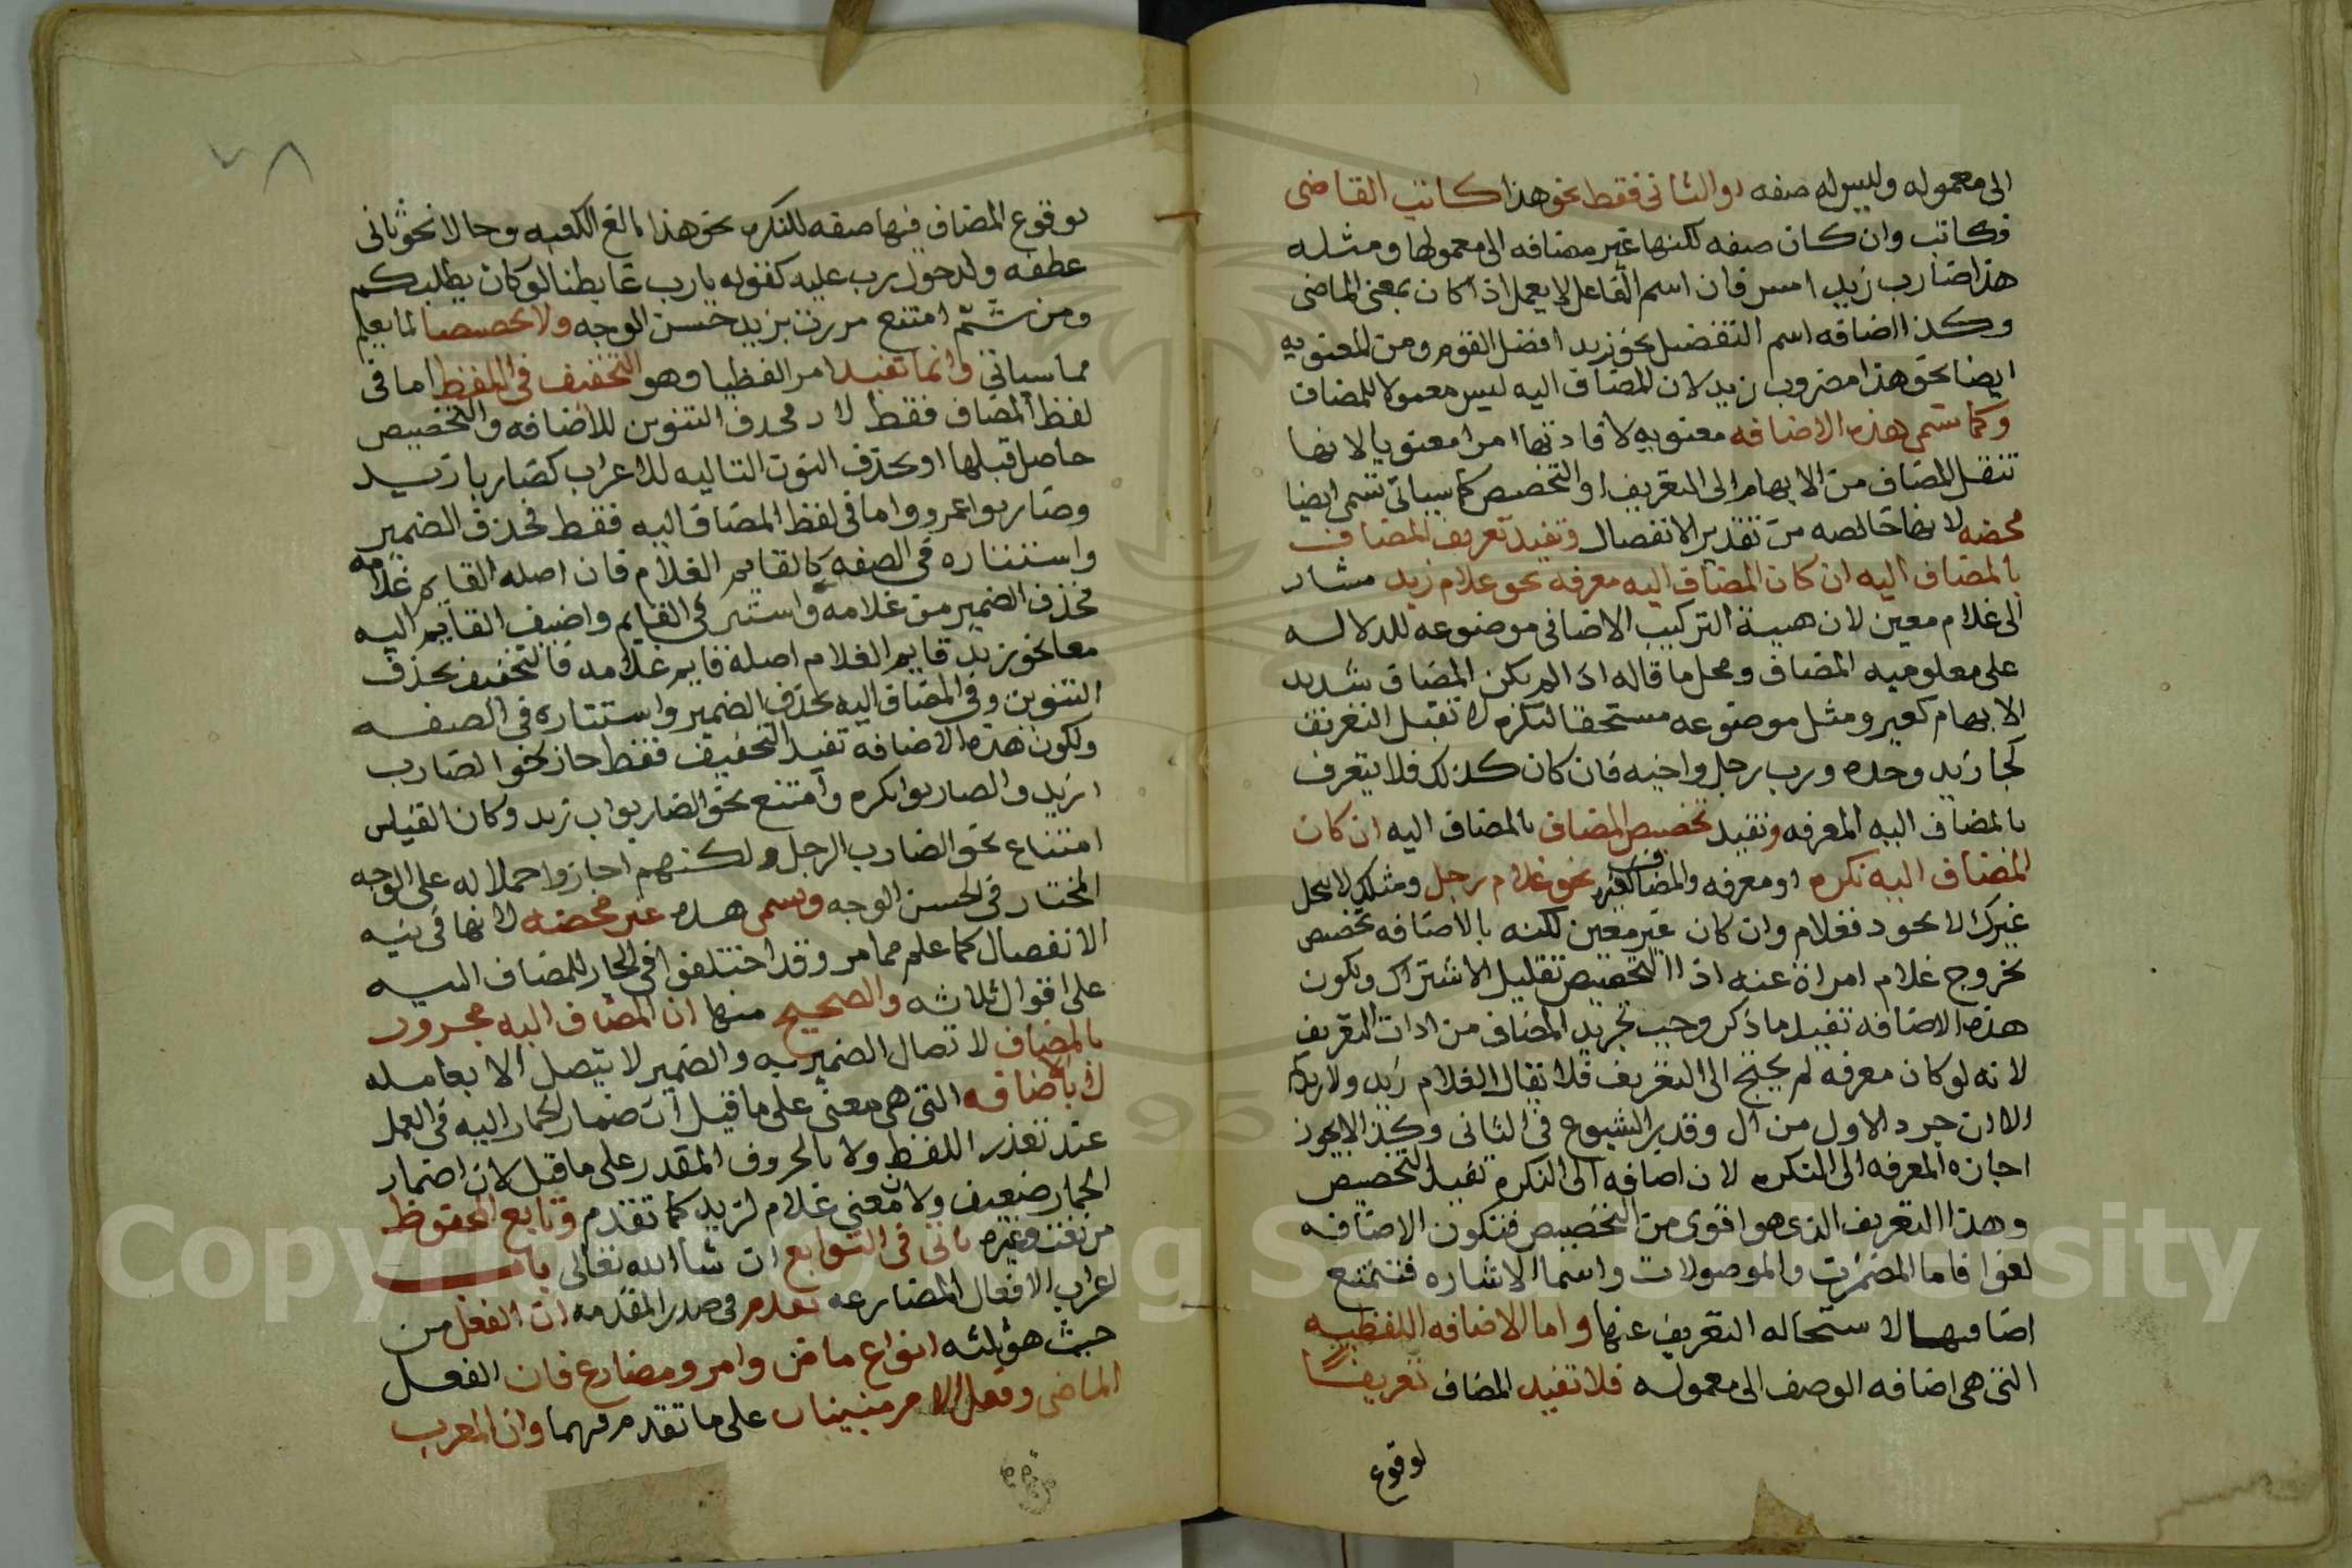 الى معموله وليس له صفه او الثانى فقط نحو هذا كاتب القاضى
فكاتب وان كان صفه لكنها غير مضافه الى معمولها ومثله
هذا ضارب زيد امس فان اسم الفاعل لا يعمل اذا كان بمعنى الماضى
وكذا اضافه اسم التفضيل نحو زيد افضل القوم ومن المعنويه
ايضا نحو هذا مضروب زيد لان المضاف اليه ليس معمولا للمضاف
وكما تسمى هذه الاضافه معنويه لافادتها امرا معنويا لانها
تنقل المضاف من الابهام الى التعريف او التخصيص كما سياتى تسمى ايضا
محضه لانها خالصه من تقدير الانفصال وتفيد تعريف المضاف
بالمضاف اليه ان كان المضاف اليه معرفه نحو غلام زيد مشار
الى غلام معين لان هيية التركيب الاضافى موضوعه للدلاله
على معلوميه المضاف ومحل ما قاله اذا لم يكن المضاف شديد
الابهام كغير ومثل موضوعه مستحقا لنكره لا تقبل التعريف
كجا زيد وحده ورب رجل واخيه فان كان كذلك فلا يتعرف
بالمضاف اليه المعرفه وتفيد تخصيص المضاف بالمضاف اليه ان كان
المضاف اليه نكره او معرفه والمضاف كغير نحو غلام رجل ومثلك لا يبخل
غيرك لا يجود فغلام وان كان غير معين لكنه بالاضافه تخصص
بخروج غلام امراة عنه اذ التخصيص تقليل الاشتراك ولكون
هذه الاضافه تفيد ما ذكر وجب تجريد المضاف من ادات التعريف
لانه لو كان معرفه لم يحتج الى التعريف فلا يقال الغلام زيد ولا زيدكم
الا ان جرد الاول من ال وقدير الشيوع فى الثانى وكذا لا يجوز
اجازه المعرفه الى النكره لان اضافه الى النكره تفيد التخصيص
وهذا التعريف الذى هو اقوى من التخصيص فتكون الاضافه
لغوا فاما المضمرت والموصولات واسما الاشاره فتمتنع
اضافتها لاستحاله التعريف عنها واما الاضافه اللفظيه
التى هى اضافه الوصف الى معموله فلا تفيد المضاف تعريفًا
لوقوع
٧٨
لوقوع المضاف فيها صفه للنكره نحو هذا بالغ الكعبه وحالا نحو ثانى
عطفه ولدخول رب عليه كقوله يا رب غابطنا لو كان يطلبكم
ومن ثم امتنع مررت بزيد حسن الوجه ولا تخصيصا لما يعلم
مما سياتى وانما تفيد امرا لفظيا وهو التخفيف فى اللفظ اما فى
لفظ المضاف فقط بحذف التنوين للاضافه والتخصيص
حاصل قبلها او بحذف النون التاليه للاعراب كضاربا زيد
وضاربوا عمرو واما فى لفظ المضاف اليه فقط فحذف الضمير
واستتاره فى الصفه كالقايم الغلام فان اصله القايم غلامه
فحذف الضمير من غلامه واستتر فى القايم واضيف القايم اليه
معا نحو زيد قايم الغلام اصله قايم غلامه فالتخفيف بحذف
التنوين وفى المضاف اليه بحذف الضمير واستتاره فى الصفه
ولكون هذه الاضافه تفيد التخفيف فقط جاز نحو الضارب
ازيد والضاربوا بكره وامتنع نحو الضاربوا ب زيد وكان القياس
امتناع نحو الضارب الرجل ولكنهم اجازوا حملا له على الوجه
المختار فى الحسن الوجه وتسمى هذه غير محضه لانها فى نيه
الانفصال كما علم مما مر وقد اختلفوا فى الجار للمضاف اليه
على اقوال ثلاثه والصحيح منها ان المضاف اليه مجرور
بالمضاف لاتصال الضمير به والضمير لا يتصل الا بعامله
لا بالاضافه التى هى معنى على ما قيل ان ضمار الجار اليه فى العمل
عند تعذر اللفظ ولا بالحروف المقدر على ما قيل لان اضمار
الجار ضعيف ولان معنى غلام لزيد كما تقدم وتابع المخفوظ
من نعت وغيره ياتى فى التوابع ان شا الله تعالى باب
اعراب الافعال المضارعه تقدم فى صدر المقدمه ان الفعل من
حيث هو ثلثه انواع ماض وامر ومضارع فان الفعل
الماضى وفعل الامر مبنيان على ما تقدم فيهما وان المعرب